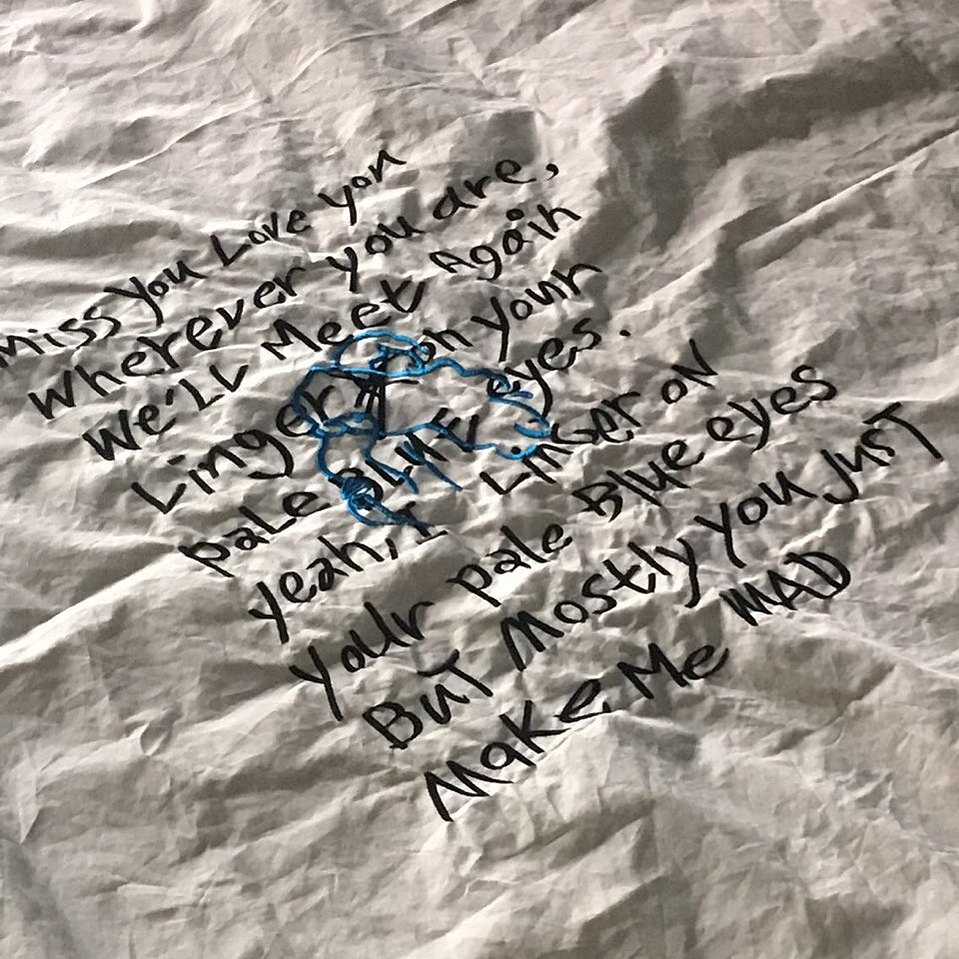 Miss you Love you
Wherever you are,
We'll Meet Again
Linger on your
pale BLUE eyes.
Yeah, I Linger oN
your pale Blue eyes
BuT Mostly you JusT
Make Me MAD